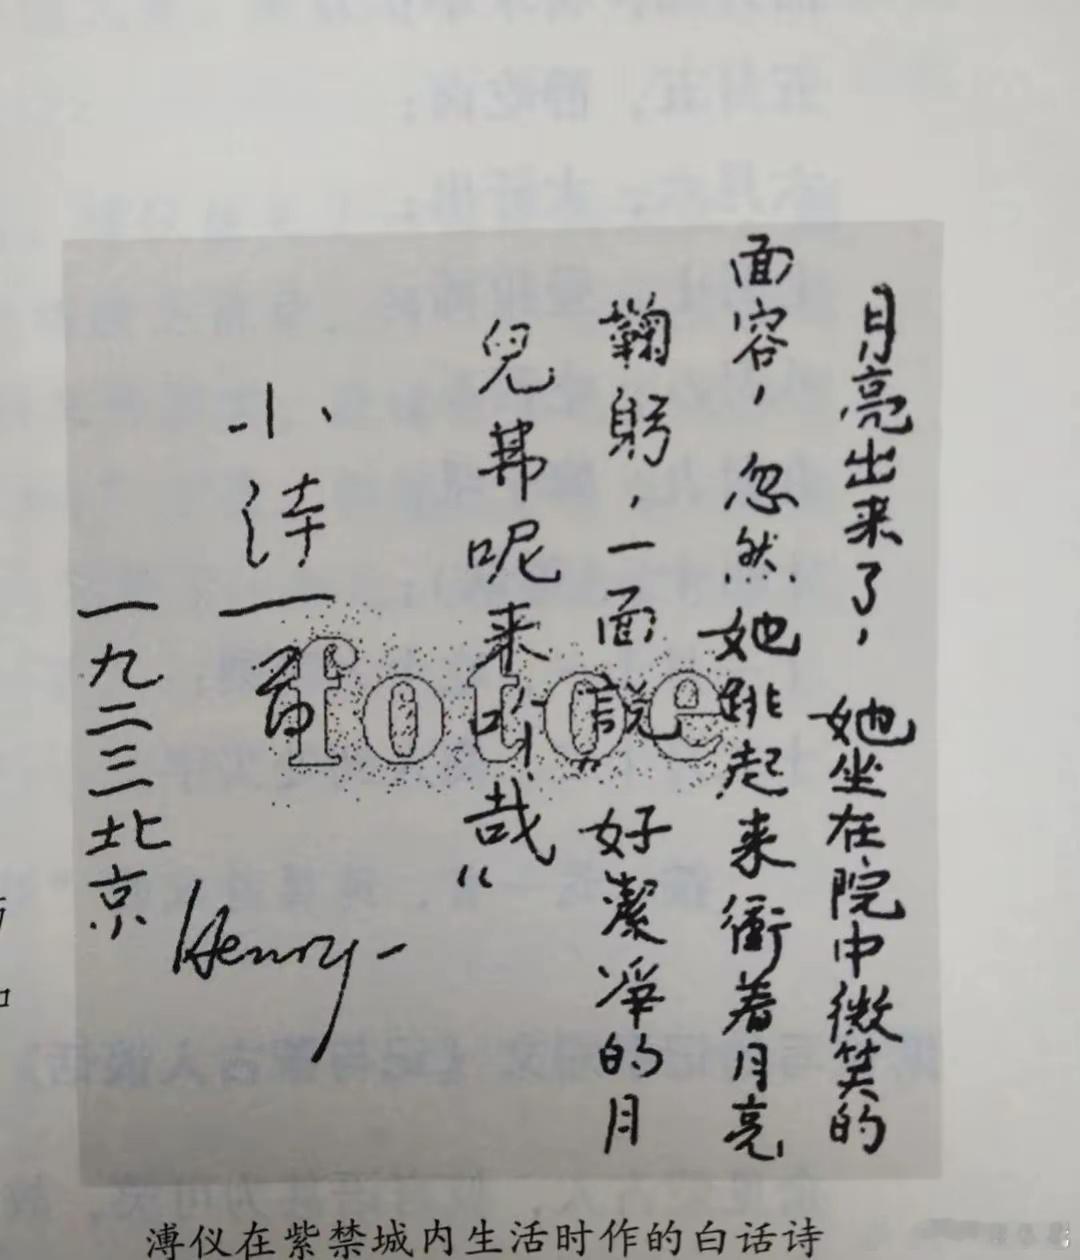 月亮出来了,她坐在院中微笑的
面容,忽然她跳起来衝着月亮
鞠躬,一面説"好潔凈的月
兒弗呢来吖哉"
小诗一首
一九二三北京
Henry
fotoe
溥仪在紫禁城内生活时作的白话诗